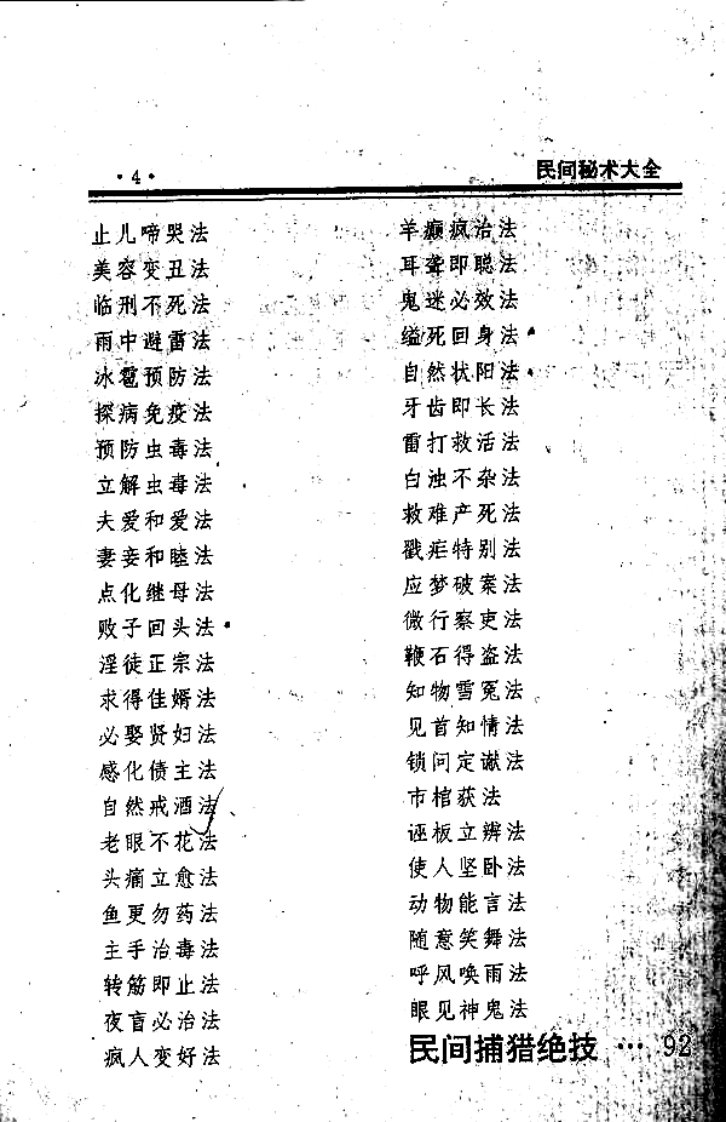 ·4·
民间秘术大全
止儿啼哭法
美容变丑法
临刑不死法
雨中避雷法
冰雹预防法
探病免疫法
预防虫毒法
立解虫毒法
夫爱和爱法
妻妾和睦法
点化继母法
败子回头法
淫徒正宗法
求得佳婿法
必娶贤妇法
感化债主法
自然戒酒法
老眼不花法
头痛立愈法
鱼更勿药法
主手治毒法
转筋即止法
夜盲必治法
疯人变好法
羊癫疯治法
耳聋即聪法
鬼迷必效法
缢死回身法
自然状阳法
牙齿即长法
雷打救活法
白浊不杂法
救难产死法
戳疟特别法
应梦破案法
微行察吏法
鞭石得盗法
知物雪冤法
见首知情法
锁问定谳法
市棺获法
诬板立辨法
使人坚卧法
动物能言法
随意笑舞法
呼风唤雨法
眼见神鬼法
民间捕猎绝技 … 92